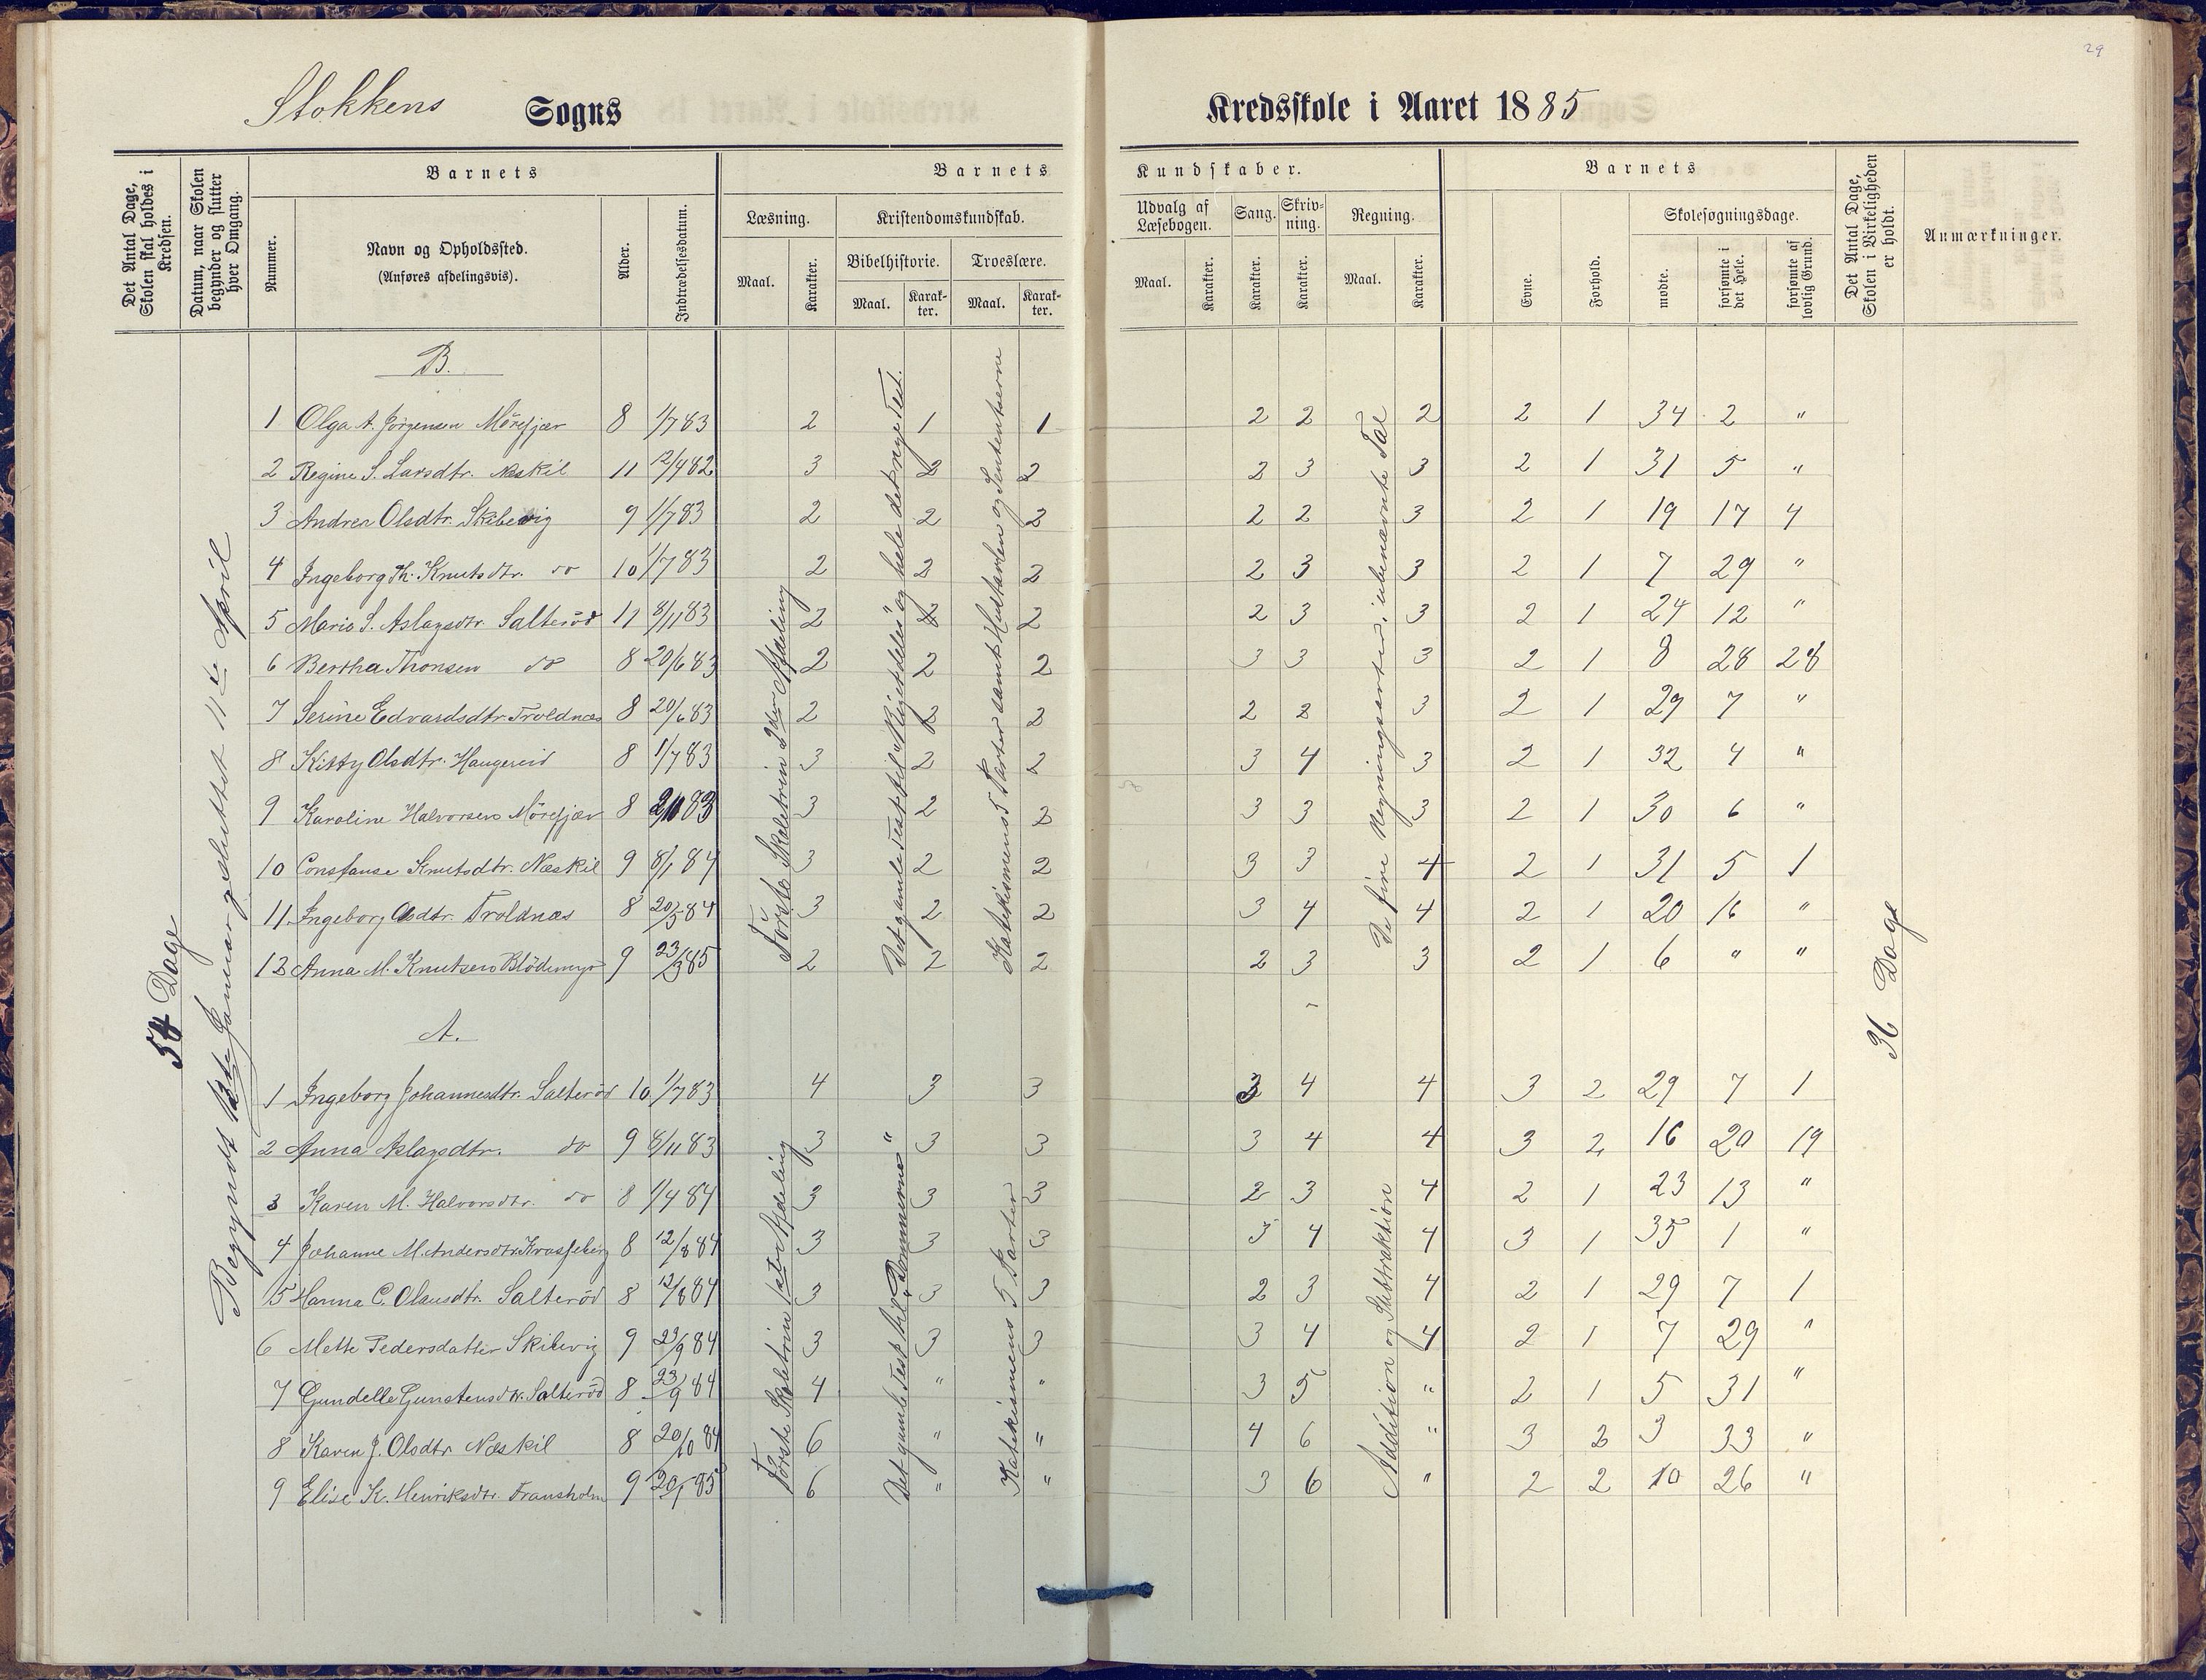 29
Stokkens Sogns Kredsskole i Aaret 1885
Det Antal Dage, Skolen skal holdes i Kredsen.
Datum, naar Skolen begynder og slutter hver Omgang.
Barnets
Nummer.
Navn og Opholdssted.
(Anføres afdelingsvis).
Alder.
Indtrædelsesdatum.
Barnets Kundskaber.
Læsning.
Maal. Karakter.
Kristendomskundskab.
Bibelhistorie.
Maal. Karakter.
Troeslære.
Maal. Karakter.
Udvalg af Læsebogen.
Maal. Karakter.
Sang.
Karakter.
Skrivning.
Karakter.
Regning.
Maal. Karakter.
Barnets
Evne.
Forhold.
Skolesøgningsdage.
mødte.
forsømte i det Hele.
forsømte af lovlig Grund.
Det Antal Dage, Skolen i Virkeligheden er holdt.
Anmærkninger.
54 Dage
Begyndt Januar, sluttet 11te April
B.
Første Skoletrin 2den Afdeling
Det gamle Test. til "Rigets deles" og hele det nye Test.
Katekismens 5 Parter samt Hustavlen og Sententserne
De fire Regningsarter i ubenævnte Tal
36 Dage
1 Olga A. Jørgensen Mörefjær 8 1/7 83 2 1 1 2 2 2 2 1 34 2 "
2 Regine S. Larsdtr. Neskil 11 12/4 82 3 2 2 2 3 3 2 1 31 5 "
3 Andrea Olsdtr. Skibevig 9 1/7 83 2 2 2 2 2 3 2 1 19 17 4
4 Ingeborg Th. Knutsdtr. do 10 1/7 83 2 2 2 2 3 3 2 1 7 29 "
5 Maria S. Aslagsdtr. Salteröd 11 8/11 83 2 2 2 2 3 3 2 1 24 12 "
6 Bertha Thorsen do 8 20/6 83 2 2 2 3 3 3 2 1 8 28 28
7 Serine Edvardsdtr. Troldnes 8 20/6 83 2 2 2 2 2 3 2 1 29 7 "
8 Kitty Olsdtr. Haugereid 8 1/7 83 3 2 2 3 4 3 2 1 32 4 "
9 Karoline Halvorsen Mörefjær 8 2/10 83 3 2 2 3 3 3 2 1 30 6 "
10 Constanse Knutsdtr. Næskil 9 8/1 84 3 2 2 3 3 4 2 1 31 5 1
11. Ingeborg Olsdtr. Troldnæs 8 20/5 84 3 2 2 3 4 4 2 1 20 16 "
12 Anna M. Knutsen Blödemyr 9 23/3 85 2 2 2 2 3 3 2 1 6 " "
A.
Første Skoletrin 1ste Afdeling
Det gamle Test. til "Dommerne"
Katekismens 5 Parter
Addition og Subtraktion
1 Ingeborg Johannesdtr. Salteröd 10 1/7 83 4 3 3 3 4 4 3 2 29 7 1
2 Anna Aslagsdtr. do 9 8/11 83 3 3 3 3 4 4 3 2 16 20 19
3 Karen M. Halvorsdtr. do 8 1/4 84 3 3 3 2 3 4 2 1 23 13 "
4 Johanne M. Andersdtr. 8 12/8 84 3 3 3 3 4 4 3 1 35 1 "
5 Hanna C. Olausdtr. Salteröd 8 12/8 84 3 3 3 2 3 4 2 1 29 7 1
6 Mette Pedersdatter Skibevig 9 23/9 84 3 3 3 3 4 4 2 1 7 29 "
7 Gundelle Gunstensdtr. Salteröd 8 23/9 84 4 " " 3 5 " 2 1 5 31 "
8 Karen J. Olsdtr Næskil 8 20/10 84 6 " " 4 6 " 3 2 3 33 "
9 Elise K. Henriksdtr. Fransholm 9 20/1 85 6 " " 3 6 " 2 2 10 26 "